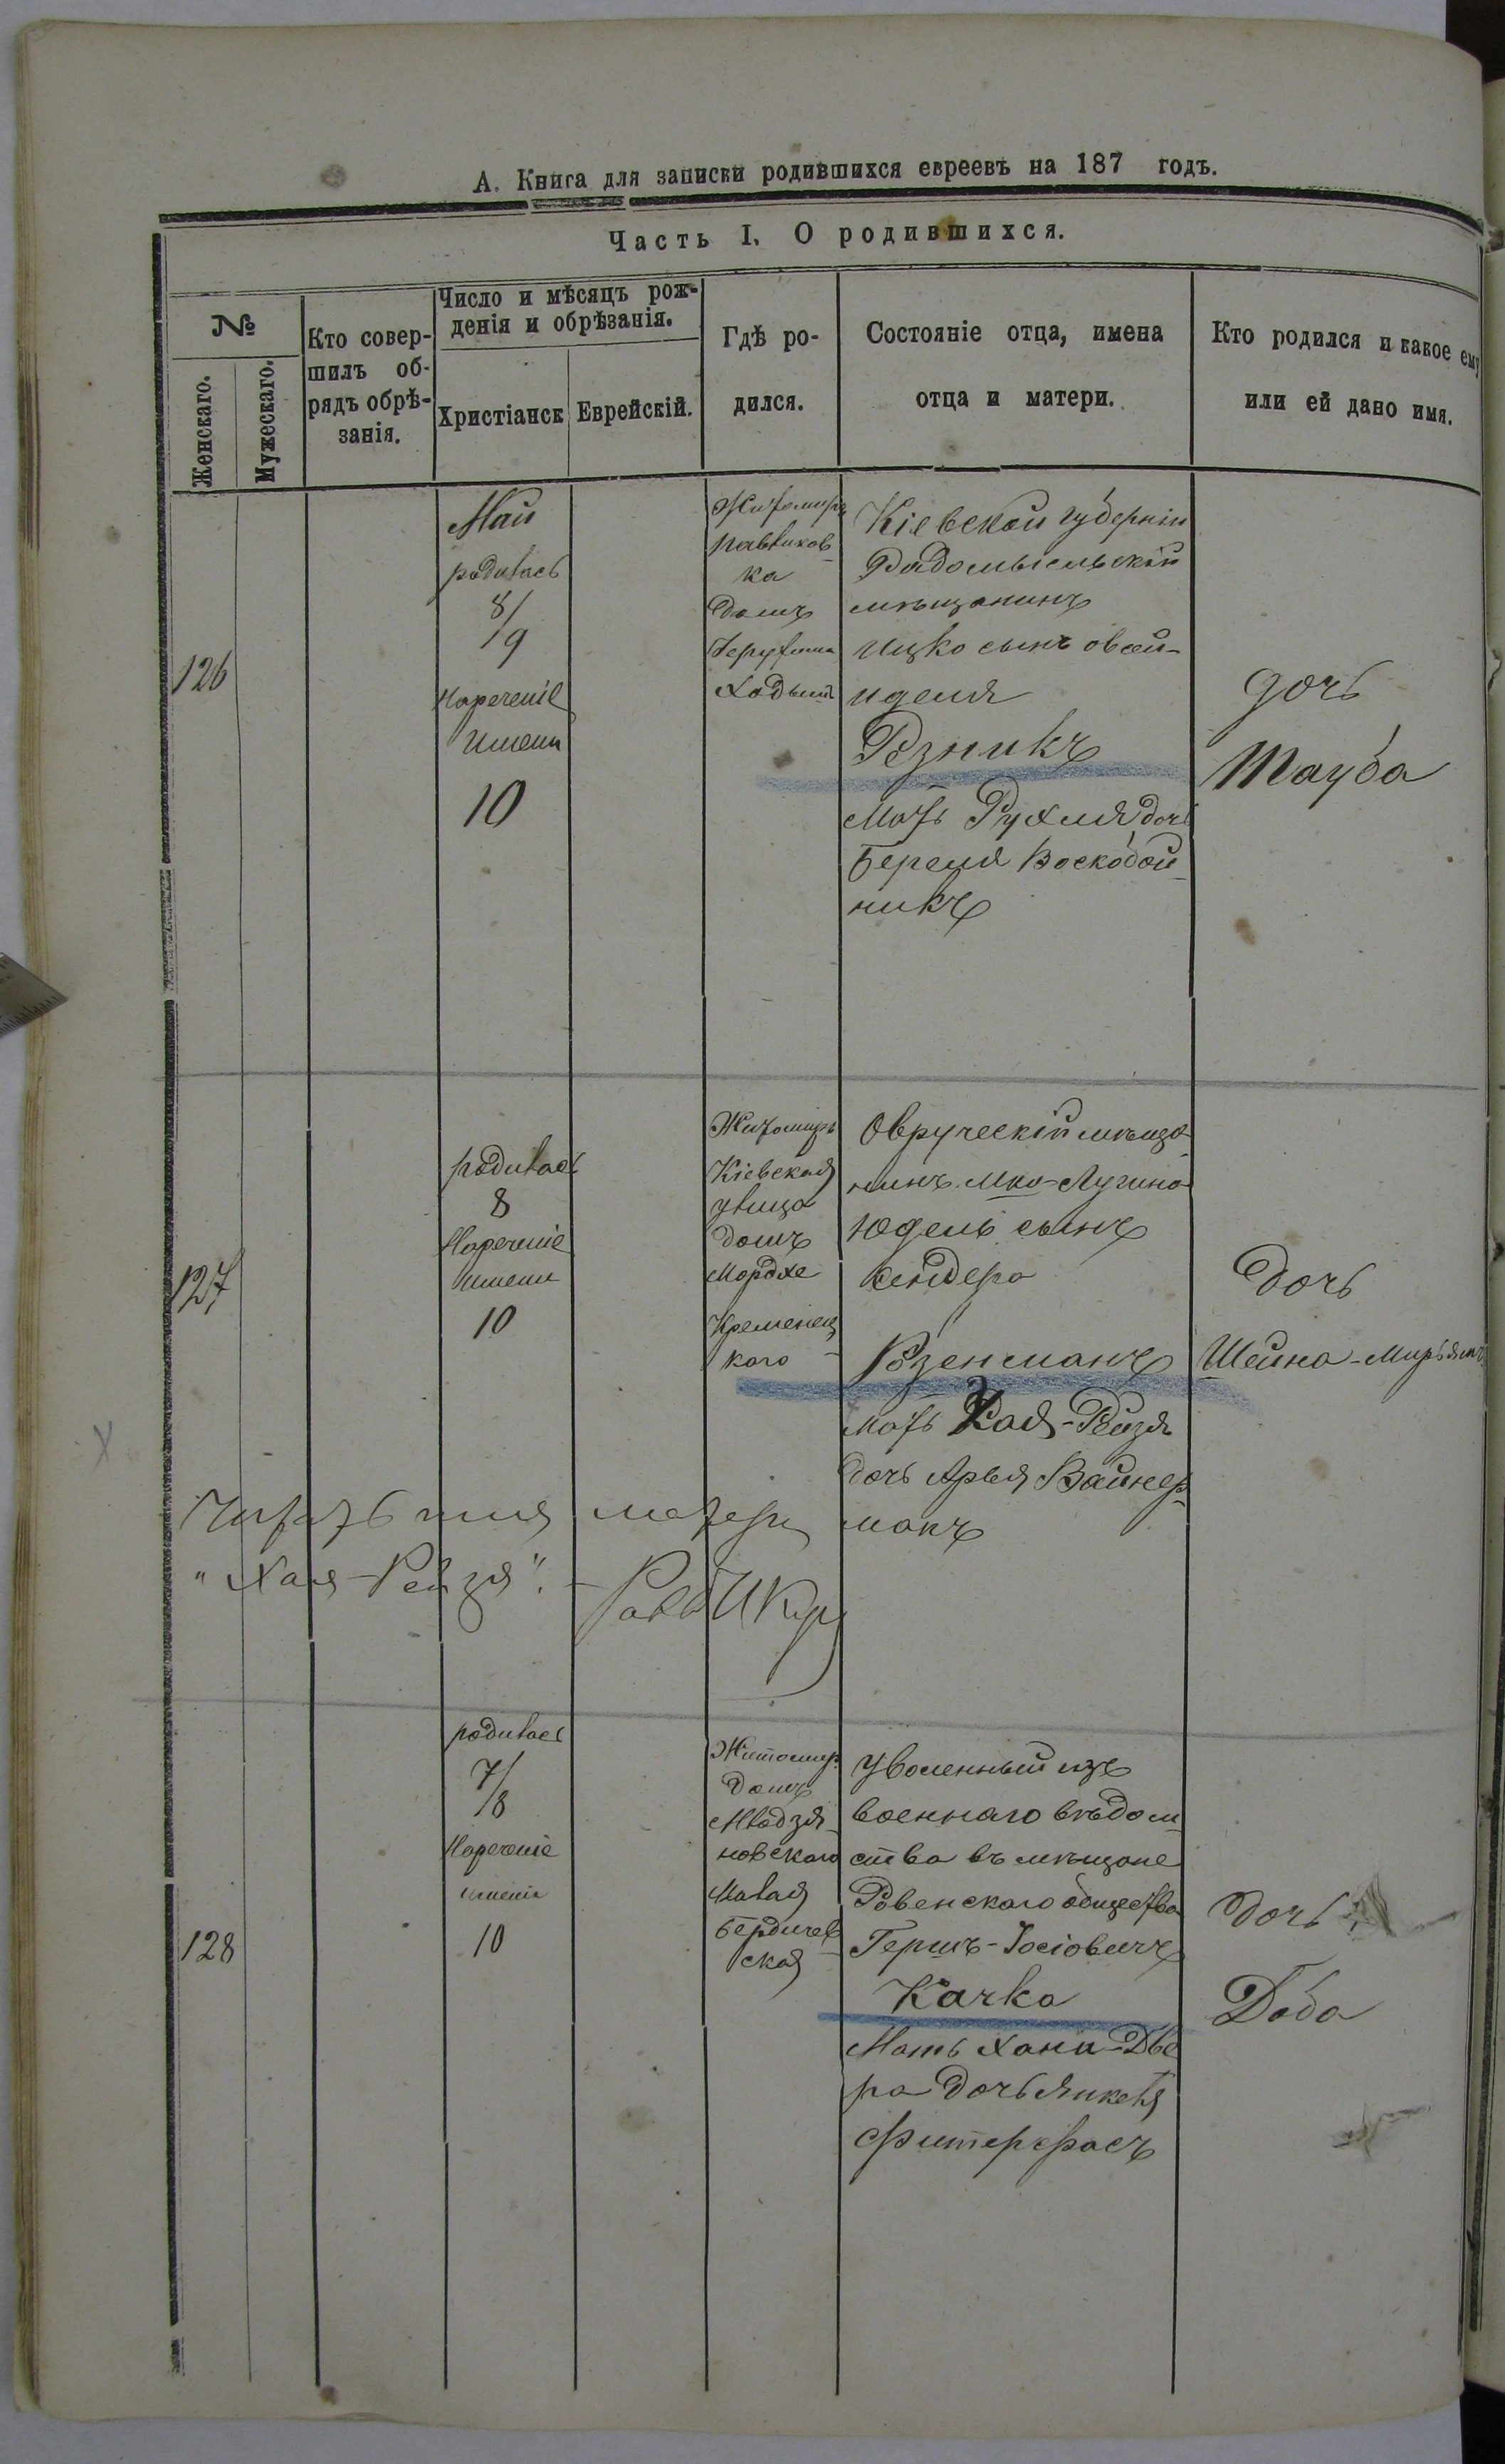 А. Книга для записки родившихся евреевъ на 187 годъ.
Часть I. О родившихся.
№
Женскаго.
Мужескаго.
Кто совер-
шилъ об-
рядъ обрѣ-
занія.
Число и мѣсяцъ рож-
денія и обрѣзанія.
Христіанск
Еврейскій.
Гдѣ ро-
дился.
Состояніе отца, имена
отца и матери.
Кто родился и какое ему
или ей дано имя.
126
Май
родилась
8/9
Нареченіе
имени
10
Житомиръ
Павликов-
ка
домъ
Кіевской губерніи
Радомысльскій
мѣщанинъ
Ицко сынъ Овсей-
Иделя
Рѣзникъ
Мать Рухля дочь
Береля Воскобой-
никъ
дочь
Тауба
127
родилась
8
Нареченіе
имени
10
Житомиръ
Кіевская
улица
домъ
Мордхе
Кременец-
каго
Овруческій мѣща-
нинъ. мко-Лугина
Юдель сынъ
Сендера
Розенманъ
мать Хая-Рейзя
дочь Арья Вайнер-
манъ
дочь
Шейна-Мирьямъ
Читать имя матери
"Хая-Рейзя".-
128
родилась
7/8
Нареченіе
имени
10
Житомир.
домъ
Млодзя-
новскаго
Малая
Бердичев-
ская
Уволенный изъ
военнаго вѣдом-
ства въ мѣщане
Ровенскаго общества
Гершъ-Іосіовичъ
Качка
Мать Хана-Две
ра дочь Янкеля
Фитерфасъ
дочь
Доба